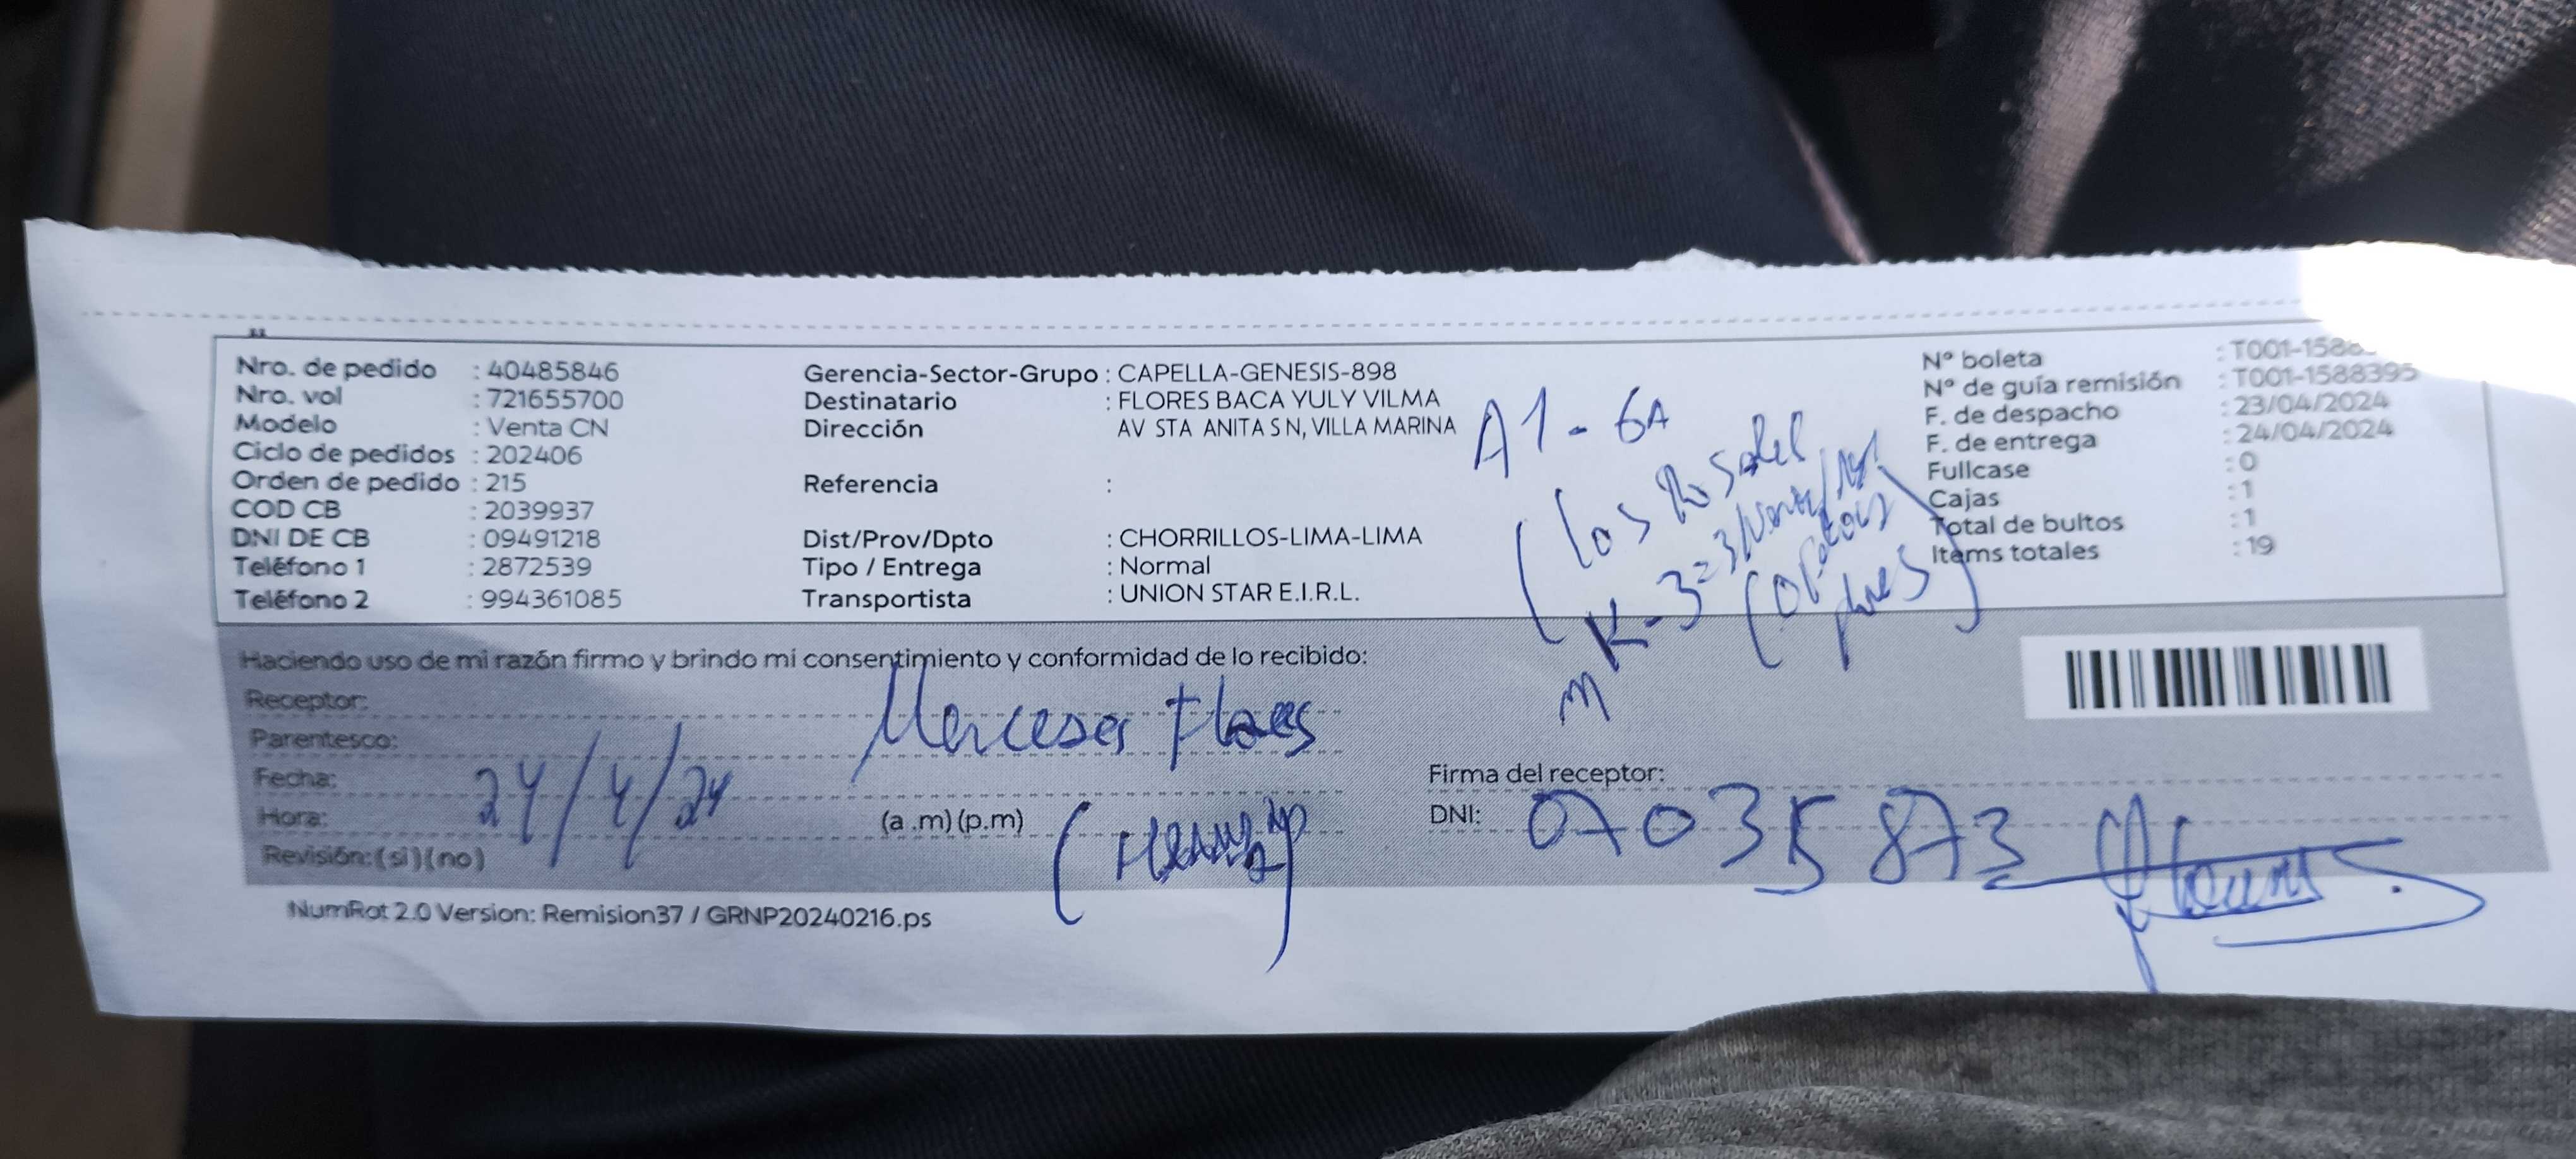 Nro. de pedido : 40485846
Nro. vol : 721655700
Modelo : Venta CN
Ciclo de pedidos : 202406
Orden de pedido : 215
COD CB : 2039937
DNI DE CB : 09491218
Teléfono 1 : 2872539
Teléfono 2 : 994361085
Gerencia-Sector-Grupo : CAPELLA-GENESIS-898
Destinatario : FLORES BACA YULY VILMA
Dirección AV STA ANITA S N, VILLA MARINA
Referencia :
Dist/Prov/Dpto : CHORRILLOS-LIMA-LIMA
Tipo / Entrega : Normal
Transportista : UNION STAR E.I.R.L.
A1-6A
(los Rosales
MK-3=3
Nº boleta : T001-158
Nº de guía remisión : T001-1588395
F. de despacho : 23/04/2024
F. de entrega : 24/04/2024
Fullcase : 0
Cajas : 1
Total de bultos : 1
Items totales : 19
Haciendo uso de mi razón firmo y brindo mi consentimiento y conformidad de lo recibido:
Receptor:
Merceses Flores
Parentesco:
Fecha: 24/4/24
Hora: (a .m) (p.m)
Revisión: ( si ) ( no )
Firma del receptor:
DNI: 07035873
NumRot 2.0 Version: Remision37 / GRNP20240216.ps